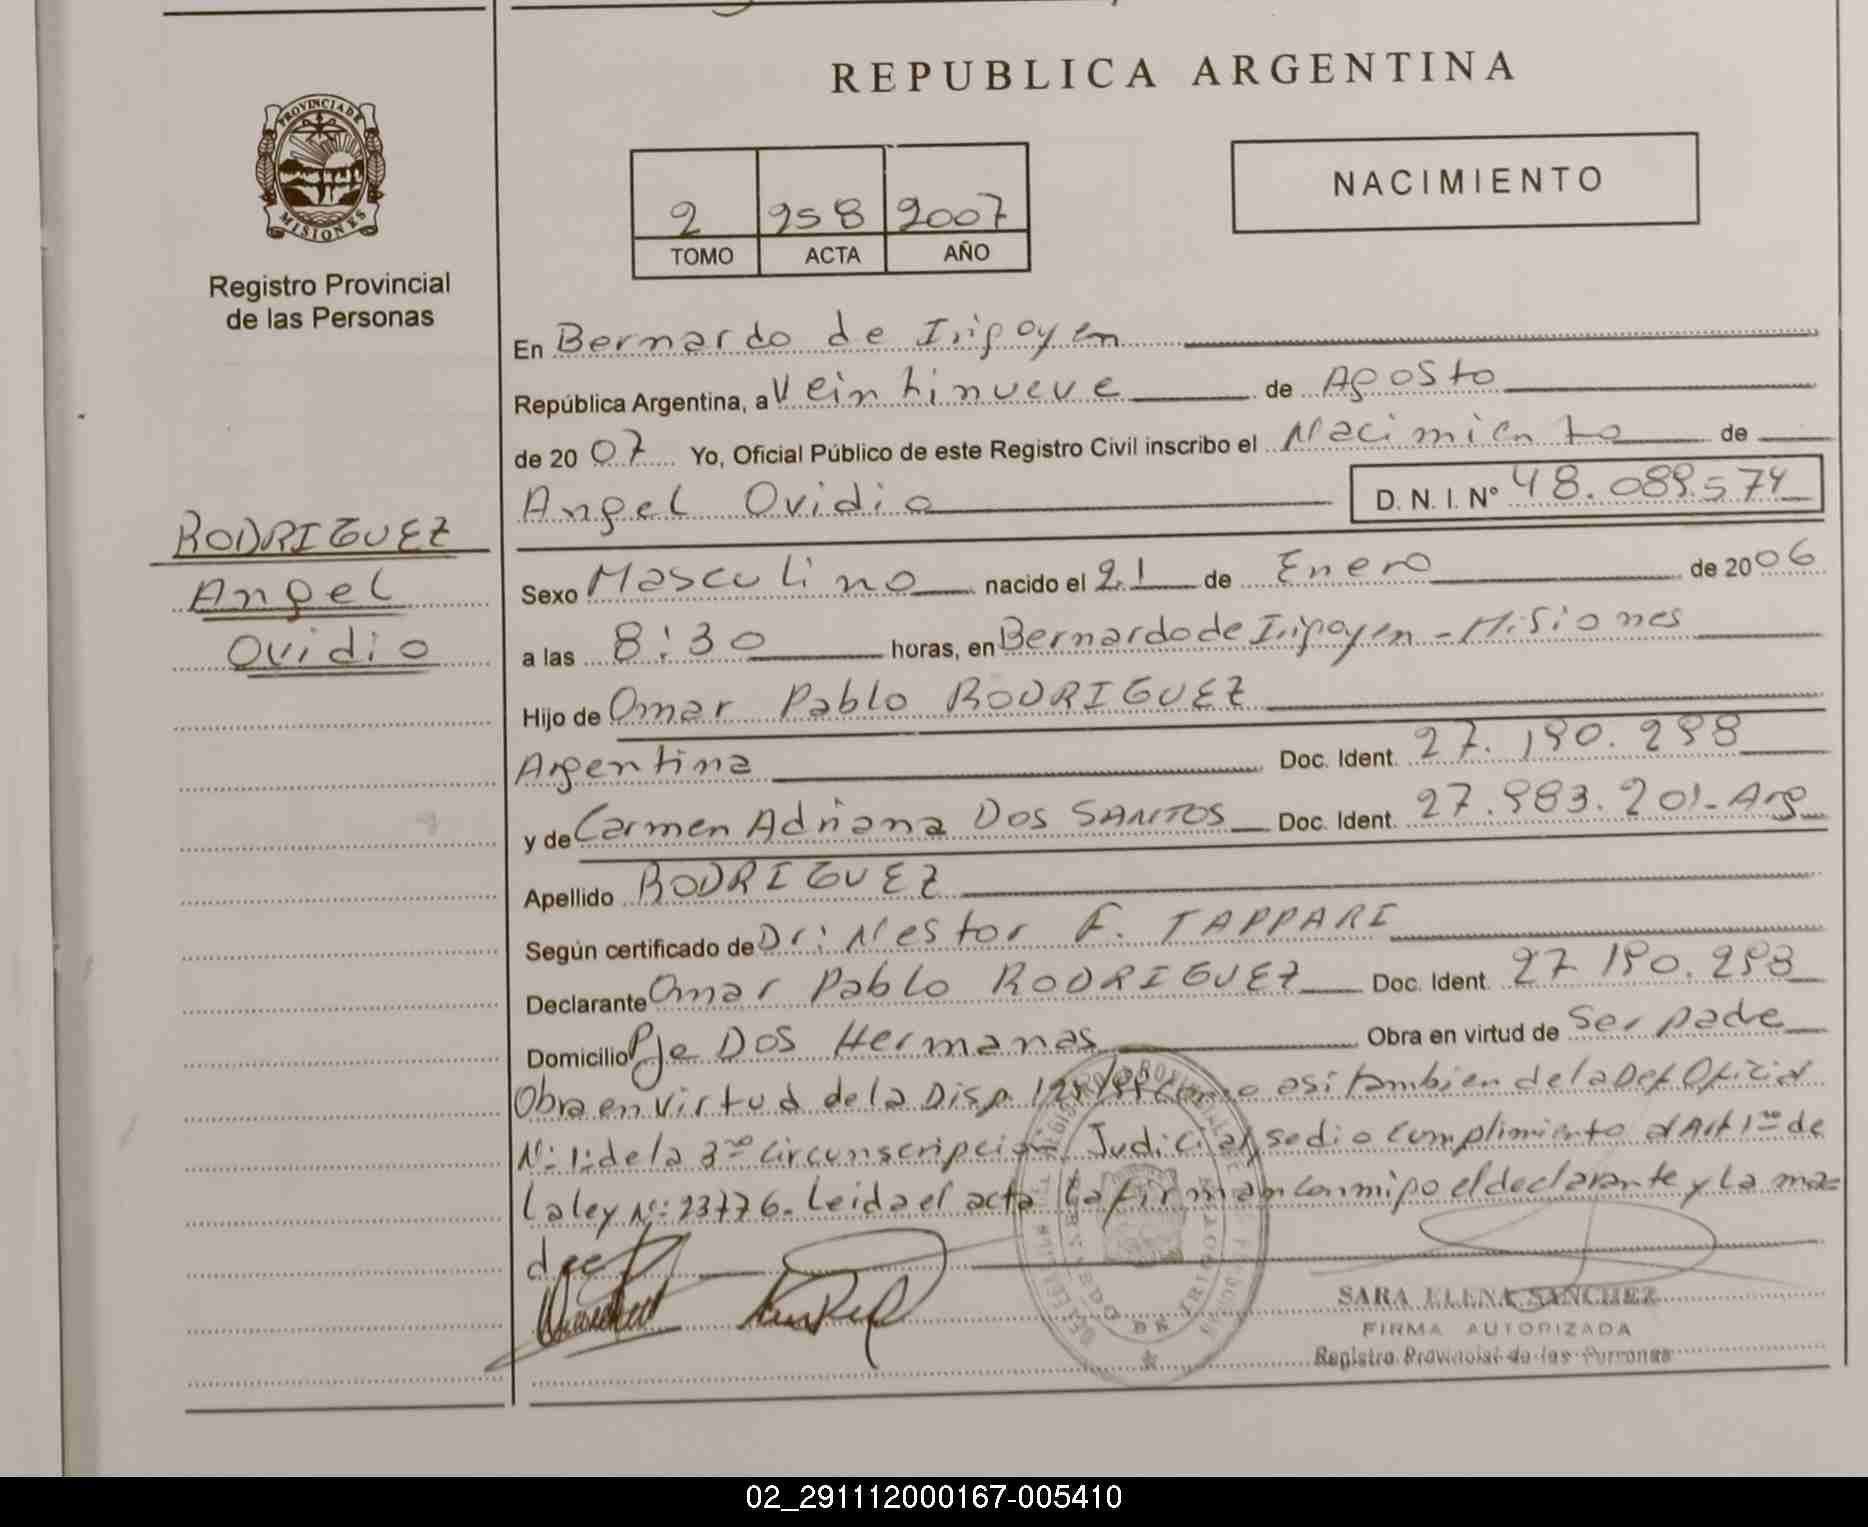 REPUBLICA ARGENTINA
PROVINCIA DE
MISIONES
Registro Provincial
de las Personas
2 258 2007
TOMO ACTA AÑO
NACIMIENTO
En Bernardo de Irigoyen
República Argentina, a Veintinueve de Agosto
de 2007 Yo, Oficial Público de este Registro Civil inscribo el Nacimiento de
Angel Ovidio D. N. I. N° 48.089.574
RODRIGUEZ
Angel
Ovidio
Sexo Masculino nacido el 21 de Enero de 2006
a las 8:30 horas, en Bernardo de Irigoyen - Misiones
Hijo de Omar Pablo RODRIGUEZ
Argentina Doc. Ident. 27.190.298
y de Carmen Adriana DOS SANTOS Doc. Ident. 27.983.201- Arg
Apellido RODRIGUEZ
Según certificado de Dr: Nestor F. TAPPARI
Declarante Omar Pablo RODRIGUEZ Doc. Ident. 27.190.298
Domicilio Pje Dos Hermanas Obra en virtud de Ser padre
Obra en virtud de la Disp. como asi tambien de la Def. Oficial
N: 1: de la 3ra circunscripcion Judicial, se dio cumplimiento al Art 1ro de
la ley N: 23776. Leida el acta la firman conmigo el declarante y la ma=
dre
SARA ELENA SANCHEZ
FIRMA AUTORIZADA
Registro Provincial de las Personas
02_291112000167-005410